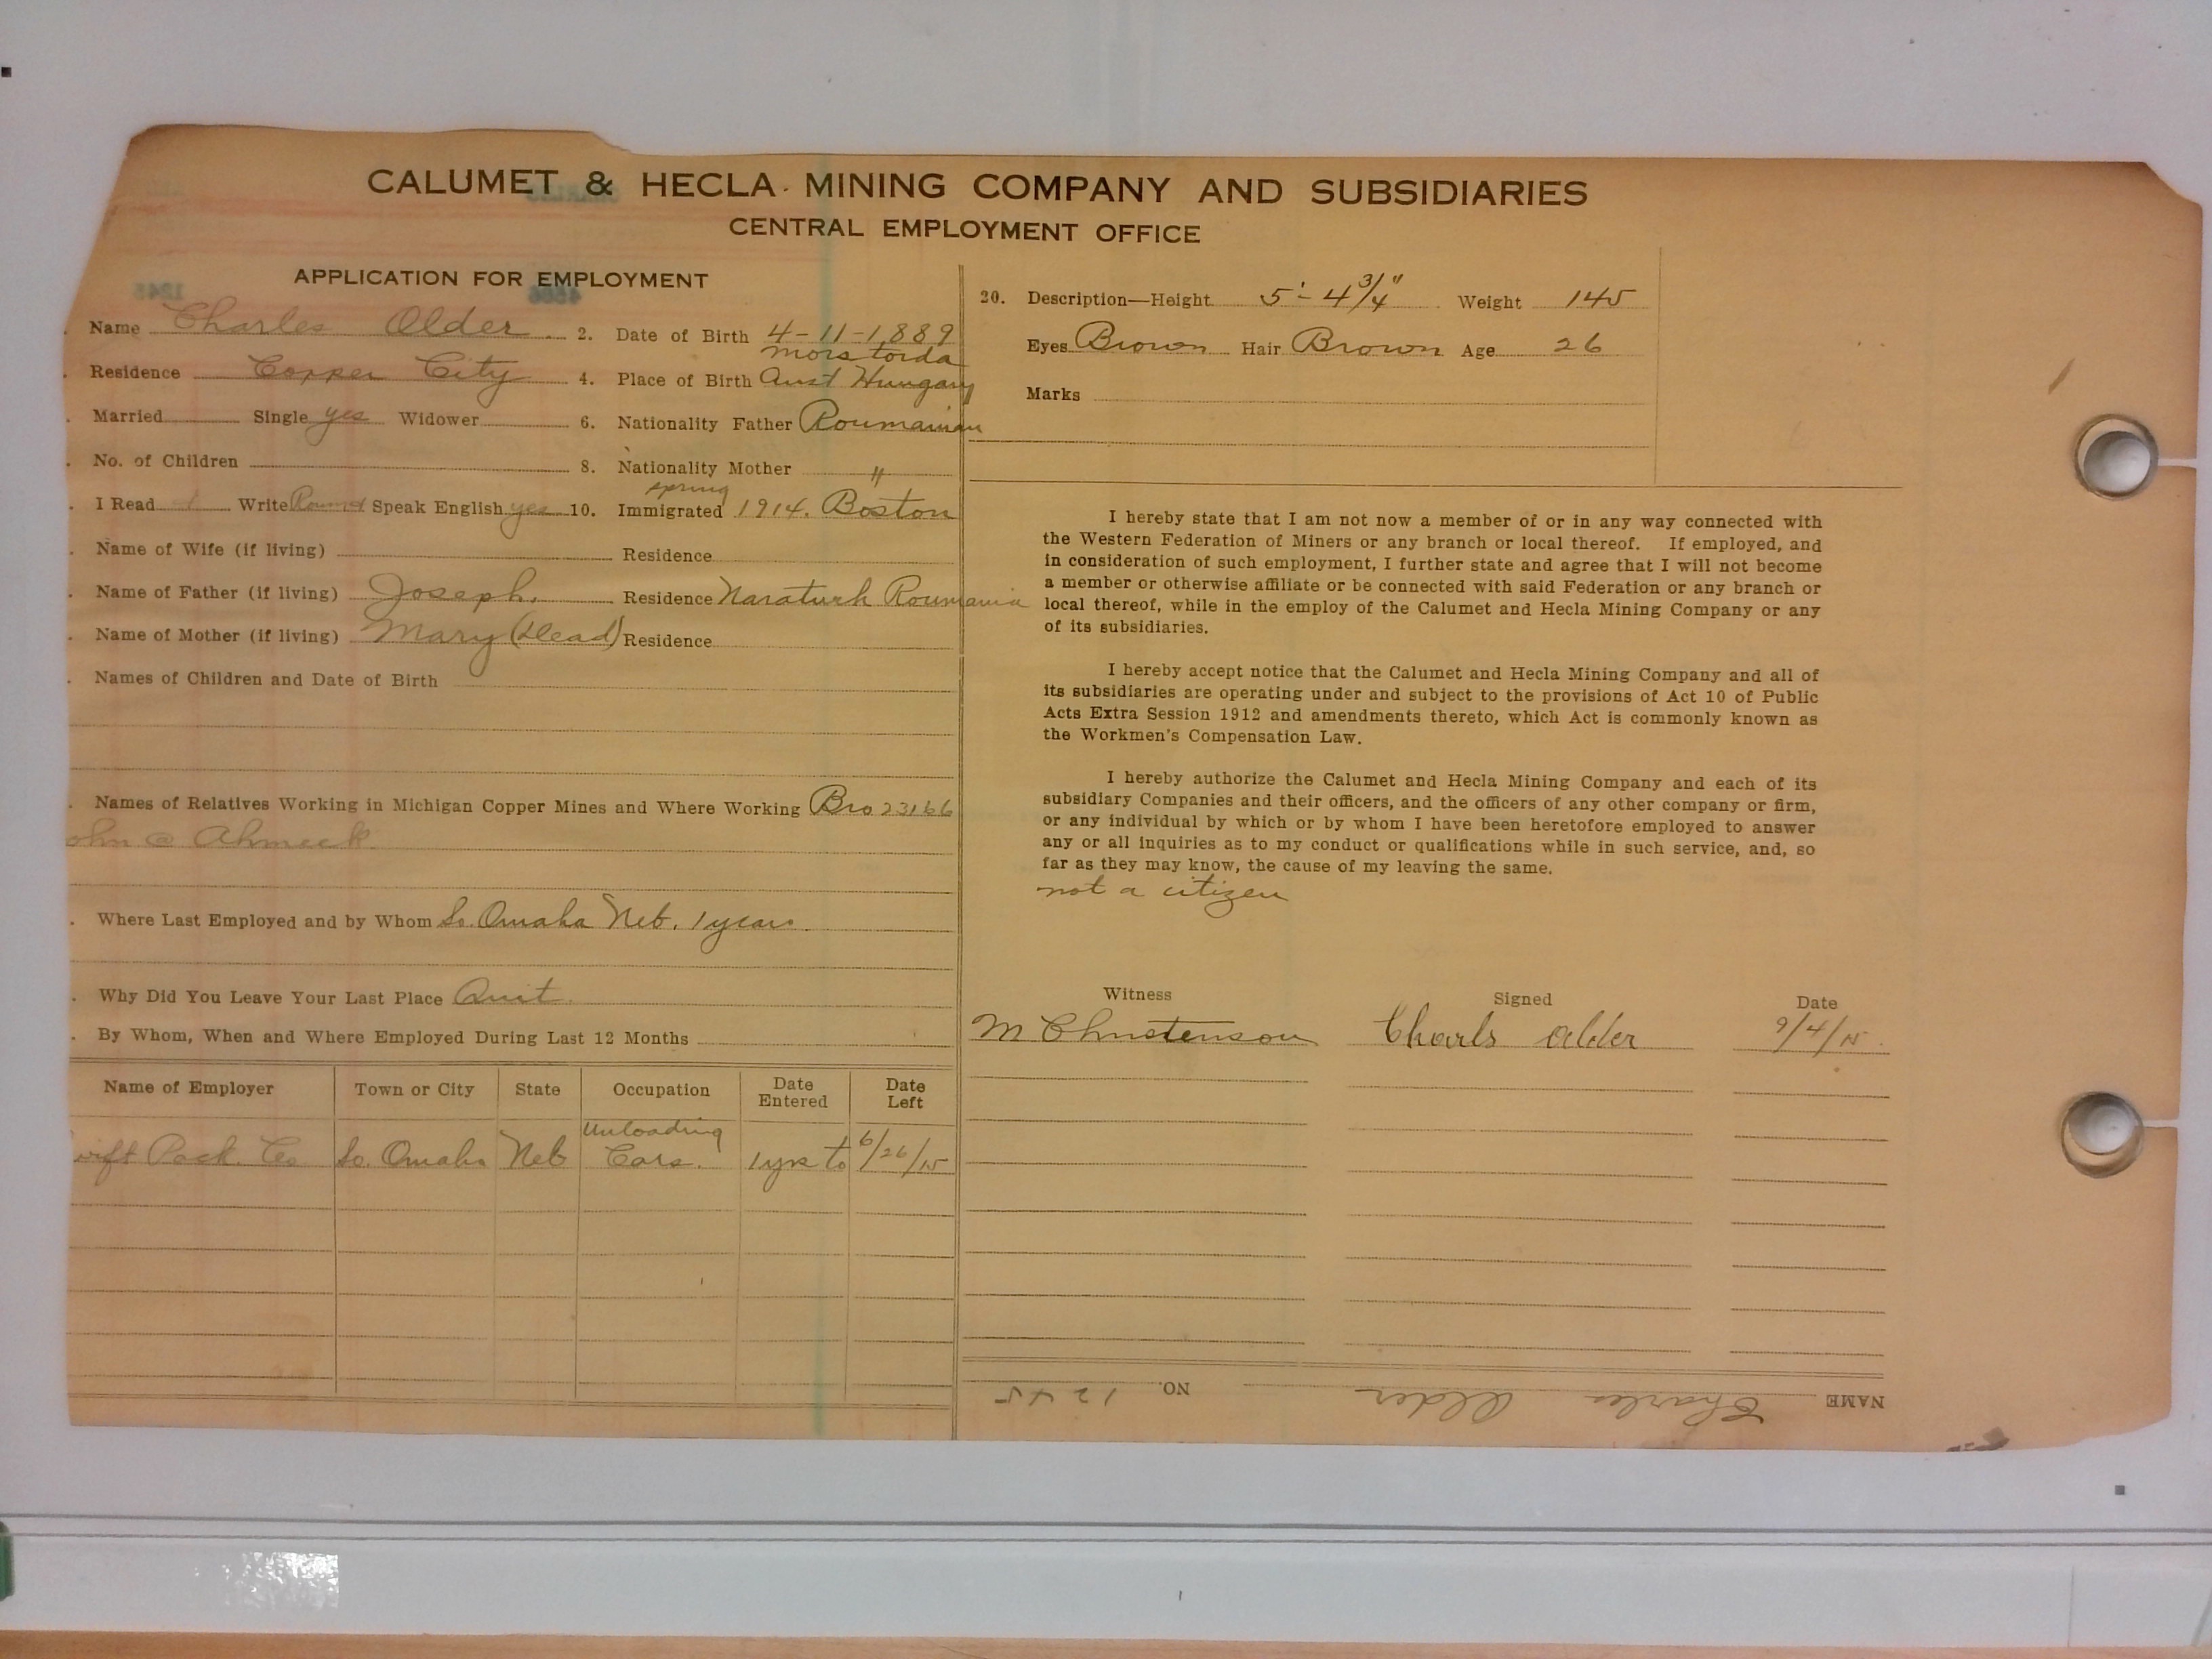 CALUMET & HECLA MINING COMPANY AND SUBSIDIARIES
CENTRAL EMPLOYMENT OFFICE
APPLICATION FOR EMPLOYMENT
Name Charles Older 2. Date of Birth 4-11-1889
Mors torda
Residence Copper City 4. Place of Birth Aust Hungary
Married Single yes Widower 6. Nationality Father Roumanian
No. of Children 8. Nationality Mother "
spring
I Read Write Roum Speak English yes 10. Immigrated 1914. Boston
Name of Wife (if living) Residence
Name of Father (if living) Joseph. Residence Naraturh Roumania
Name of Mother (if living) Mary (Dead) Residence
Names of Children and Date of Birth
Names of Relatives Working in Michigan Copper Mines and Where Working Bro 23166
ohn @ Ahmeek
Where Last Employed and by Whom So. Omaha Neb. 1 year
Why Did You Leave Your Last Place Quit.
By Whom, When and Where Employed During Last 12 Months
Name of Employer Town or City State Occupation Date Entered Date Left
Unloading
wift Pack. Co So. Omaha Neb Cars. 1 yr to 6/26/15
20. Description—Height 5'-4 3/4" Weight 145
Eyes Brown Hair Brown Age 26
Marks
I hereby state that I am not now a member of or in any way connected with
the Western Federation of Miners or any branch or local thereof. If employed, and
in consideration of such employment, I further state and agree that I will not become
a member or otherwise affiliate or be connected with said Federation or any branch or
local thereof, while in the employ of the Calumet and Hecla Mining Company or any
of its subsidiaries.
I hereby accept notice that the Calumet and Hecla Mining Company and all of
its subsidiaries are operating under and subject to the provisions of Act 10 of Public
Acts Extra Session 1912 and amendments thereto, which Act is commonly known as
the Workmen's Compensation Law.
I hereby authorize the Calumet and Hecla Mining Company and each of its
subsidiary Companies and their officers, and the officers of any other company or firm,
or any individual by which or by whom I have been heretofore employed to answer
any or all inquiries as to my conduct or qualifications while in such service, and, so
far as they may know, the cause of my leaving the same.
not a citizen
Witness Signed Date
M Christenson Charls Alder 9/4/15
NAME Charles Older NO. 1245